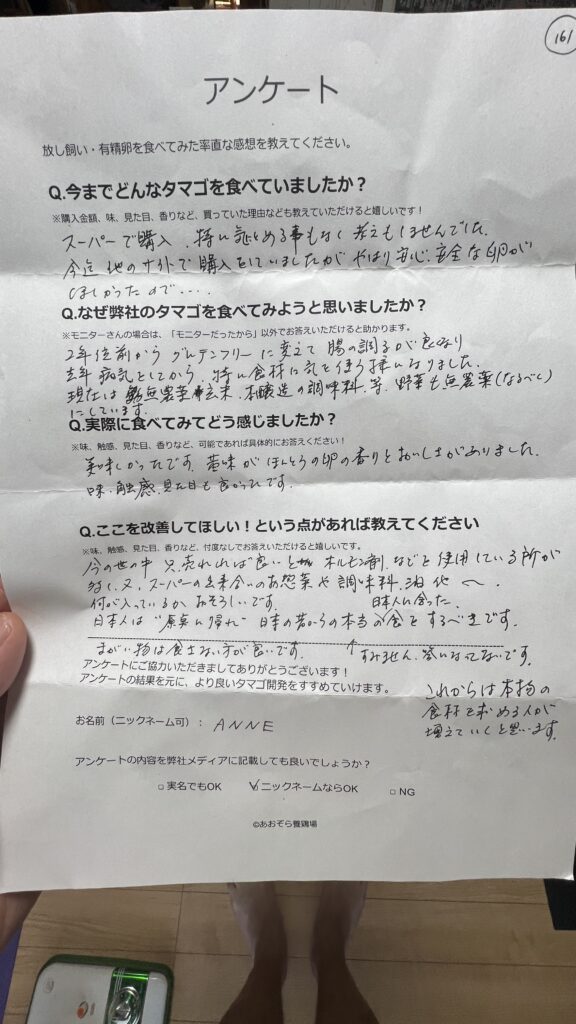 161
アンケート
放し飼い・有精卵を食べてみた率直な感想を教えてください。
Q.今までどんなタマゴを食べていましたか？
※購入金額、味、見た目、香りなど、買っていた理由なども教えていただけると嬉しいです！
スーパーで購入、特に気にとめる事もなく考えもしませんでした。
今迄 他のサイトで購入をしていましたが やはり安心、安全な卵が
ほしかったので....
Q.なぜ弊社のタマゴを食べてみようと思いましたか？
※モニターさんの場合は、「モニターだったから」以外でお答えいただけると助かります。
2年位前から グルテンフリーに変えて 腸の調子が良くなり
去年 病気をしてから、特に食材に気を使う様になりました。
現在は 無農薬玄米、本醸造の調味料、等、野菜も無農薬(なるべく)
にしています。
Q.実際に食べてみてどう感じましたか？
※味、触感、見た目、香りなど、可能であれば具体的にお答えください！
美味しかったです。黄味が ほんとうの卵の香りとおいしさがありました。
味、触感、見た目も良かったです。
Q.ここを改善してほしい！という点があれば教えてください
※味、触感、見た目、香りなど、忖度なしでお答えいただけると嬉しいです。
今の世の中 只、売れれば良いと ホルモン剤、などを使用している所が
多く、又、スーパーの出来合いのお惣菜や 調味料、油 他 〜、
何が入っているか おそろしいです。
日本人に合った、
日本人は "原点に帰れ" 日本の昔からの本当の食をするべきです。
まがい物は食さない方が良いです。 ↑すみません、答いなってないです。
アンケートにご協力いただきましてありがとうございます！
アンケートの結果を元に、より良いタマゴ開発をすすめていけます。
これからは本物の
食材を求める人が
増えていくと思います。
お名前（ニックネーム可）： ANNE
アンケートの内容を弊社メディアに記載しても良いでしょうか？
□ 実名でもOK ☑ニックネームならOK □ NG
©あおぞら養鶏場